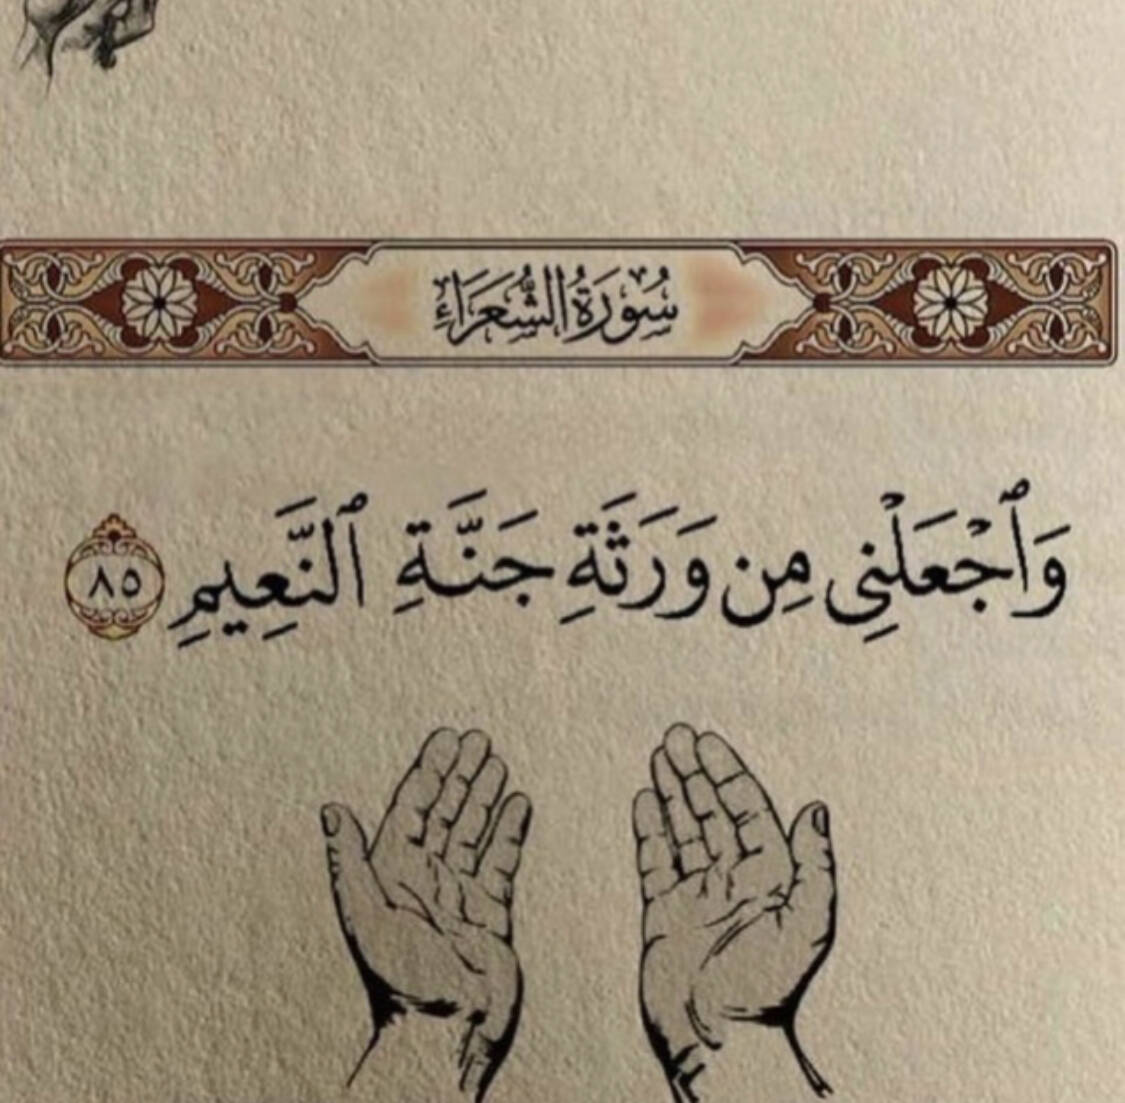 سُورَةُ الشُّعَرَاءِ
وَٱجْعَلْنِى مِن وَرَثَةِ جَنَّةِ ٱلنَّعِيمِ ٨٥